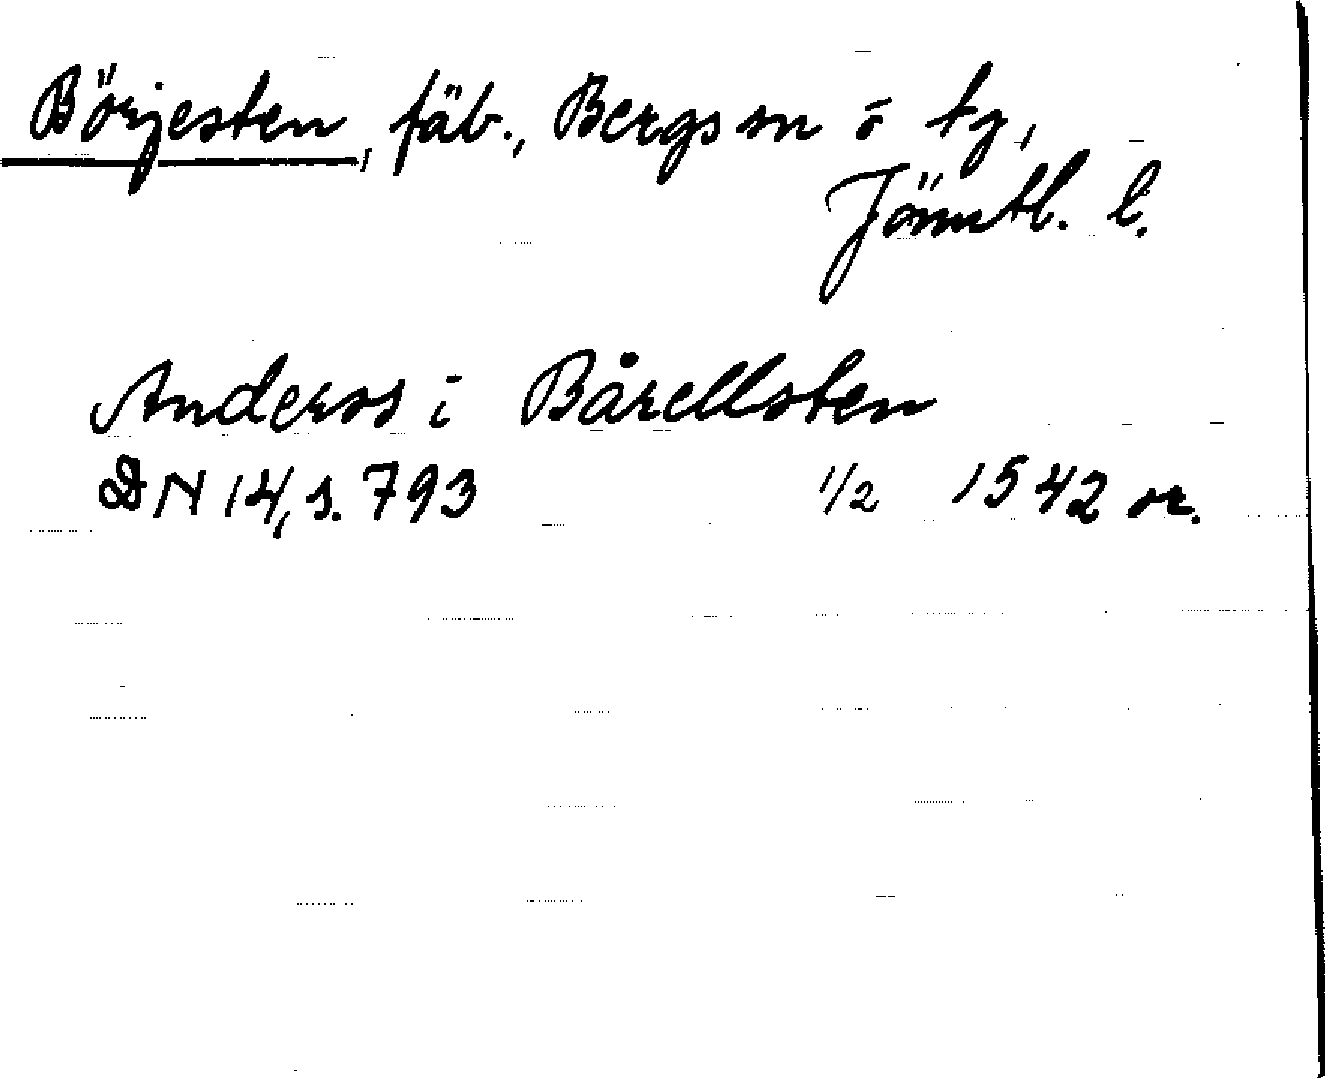 Börjesten, fäb., Bergs sn o tg,
Jämtl. l.
Anders i Bårellsten
DN 14, s. 793 1/2 1542 or.